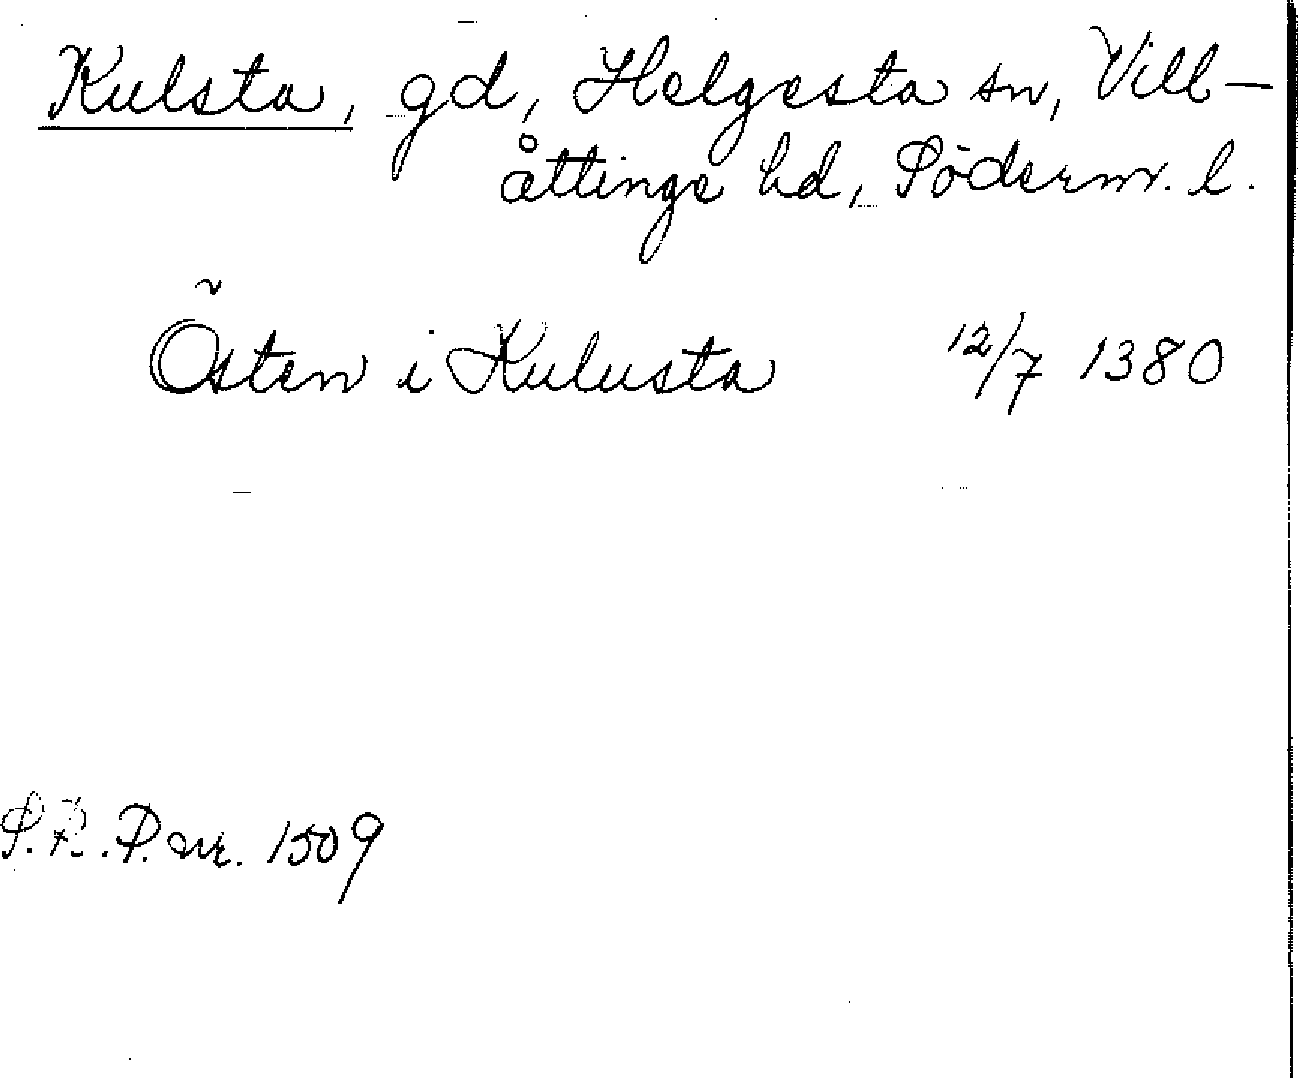 Kulsta, gd, Helgesta sn, Vill-
åttinge hd, Söderm. l.
Östen i Kulusta 12/7 1380
S.R.P. nr. 1509